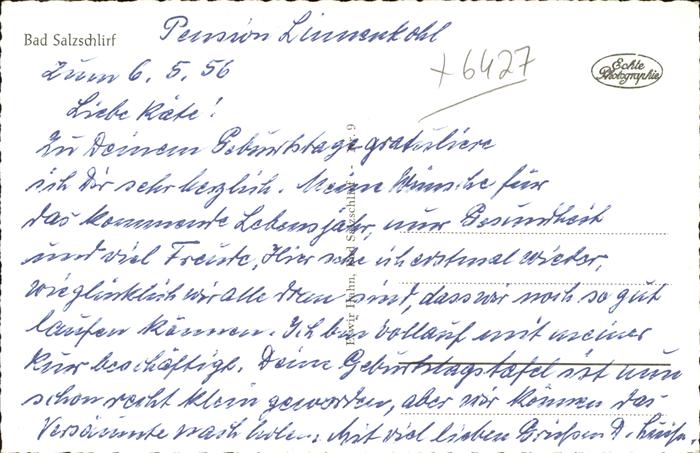 Bad Salzschlirf
Pension Linnenkohl
Zum 6. 5. 56
+6427
Echte
Photographie
Liebe Käte!
Zu Deinem Geburtstage gratuliere
ich Dir sehr herzlich. Meine Wünsche für
das kommende Lebensjahr, nur Gesundheit
und viel Freude, Hier sehe ich erstmal wieder,
wie glücklich wir alle dran sind, dass wir noch so gut
laufen können. Ich bin vollauf mit meiner
Kur beschäftigt. Deine Geburtstagstafel ist nun
schon recht klein geworden, aber wir können das
Versäumte nachholen. Mit viel lieben Grüßen D.
Hahn, Bad Salzschlirf